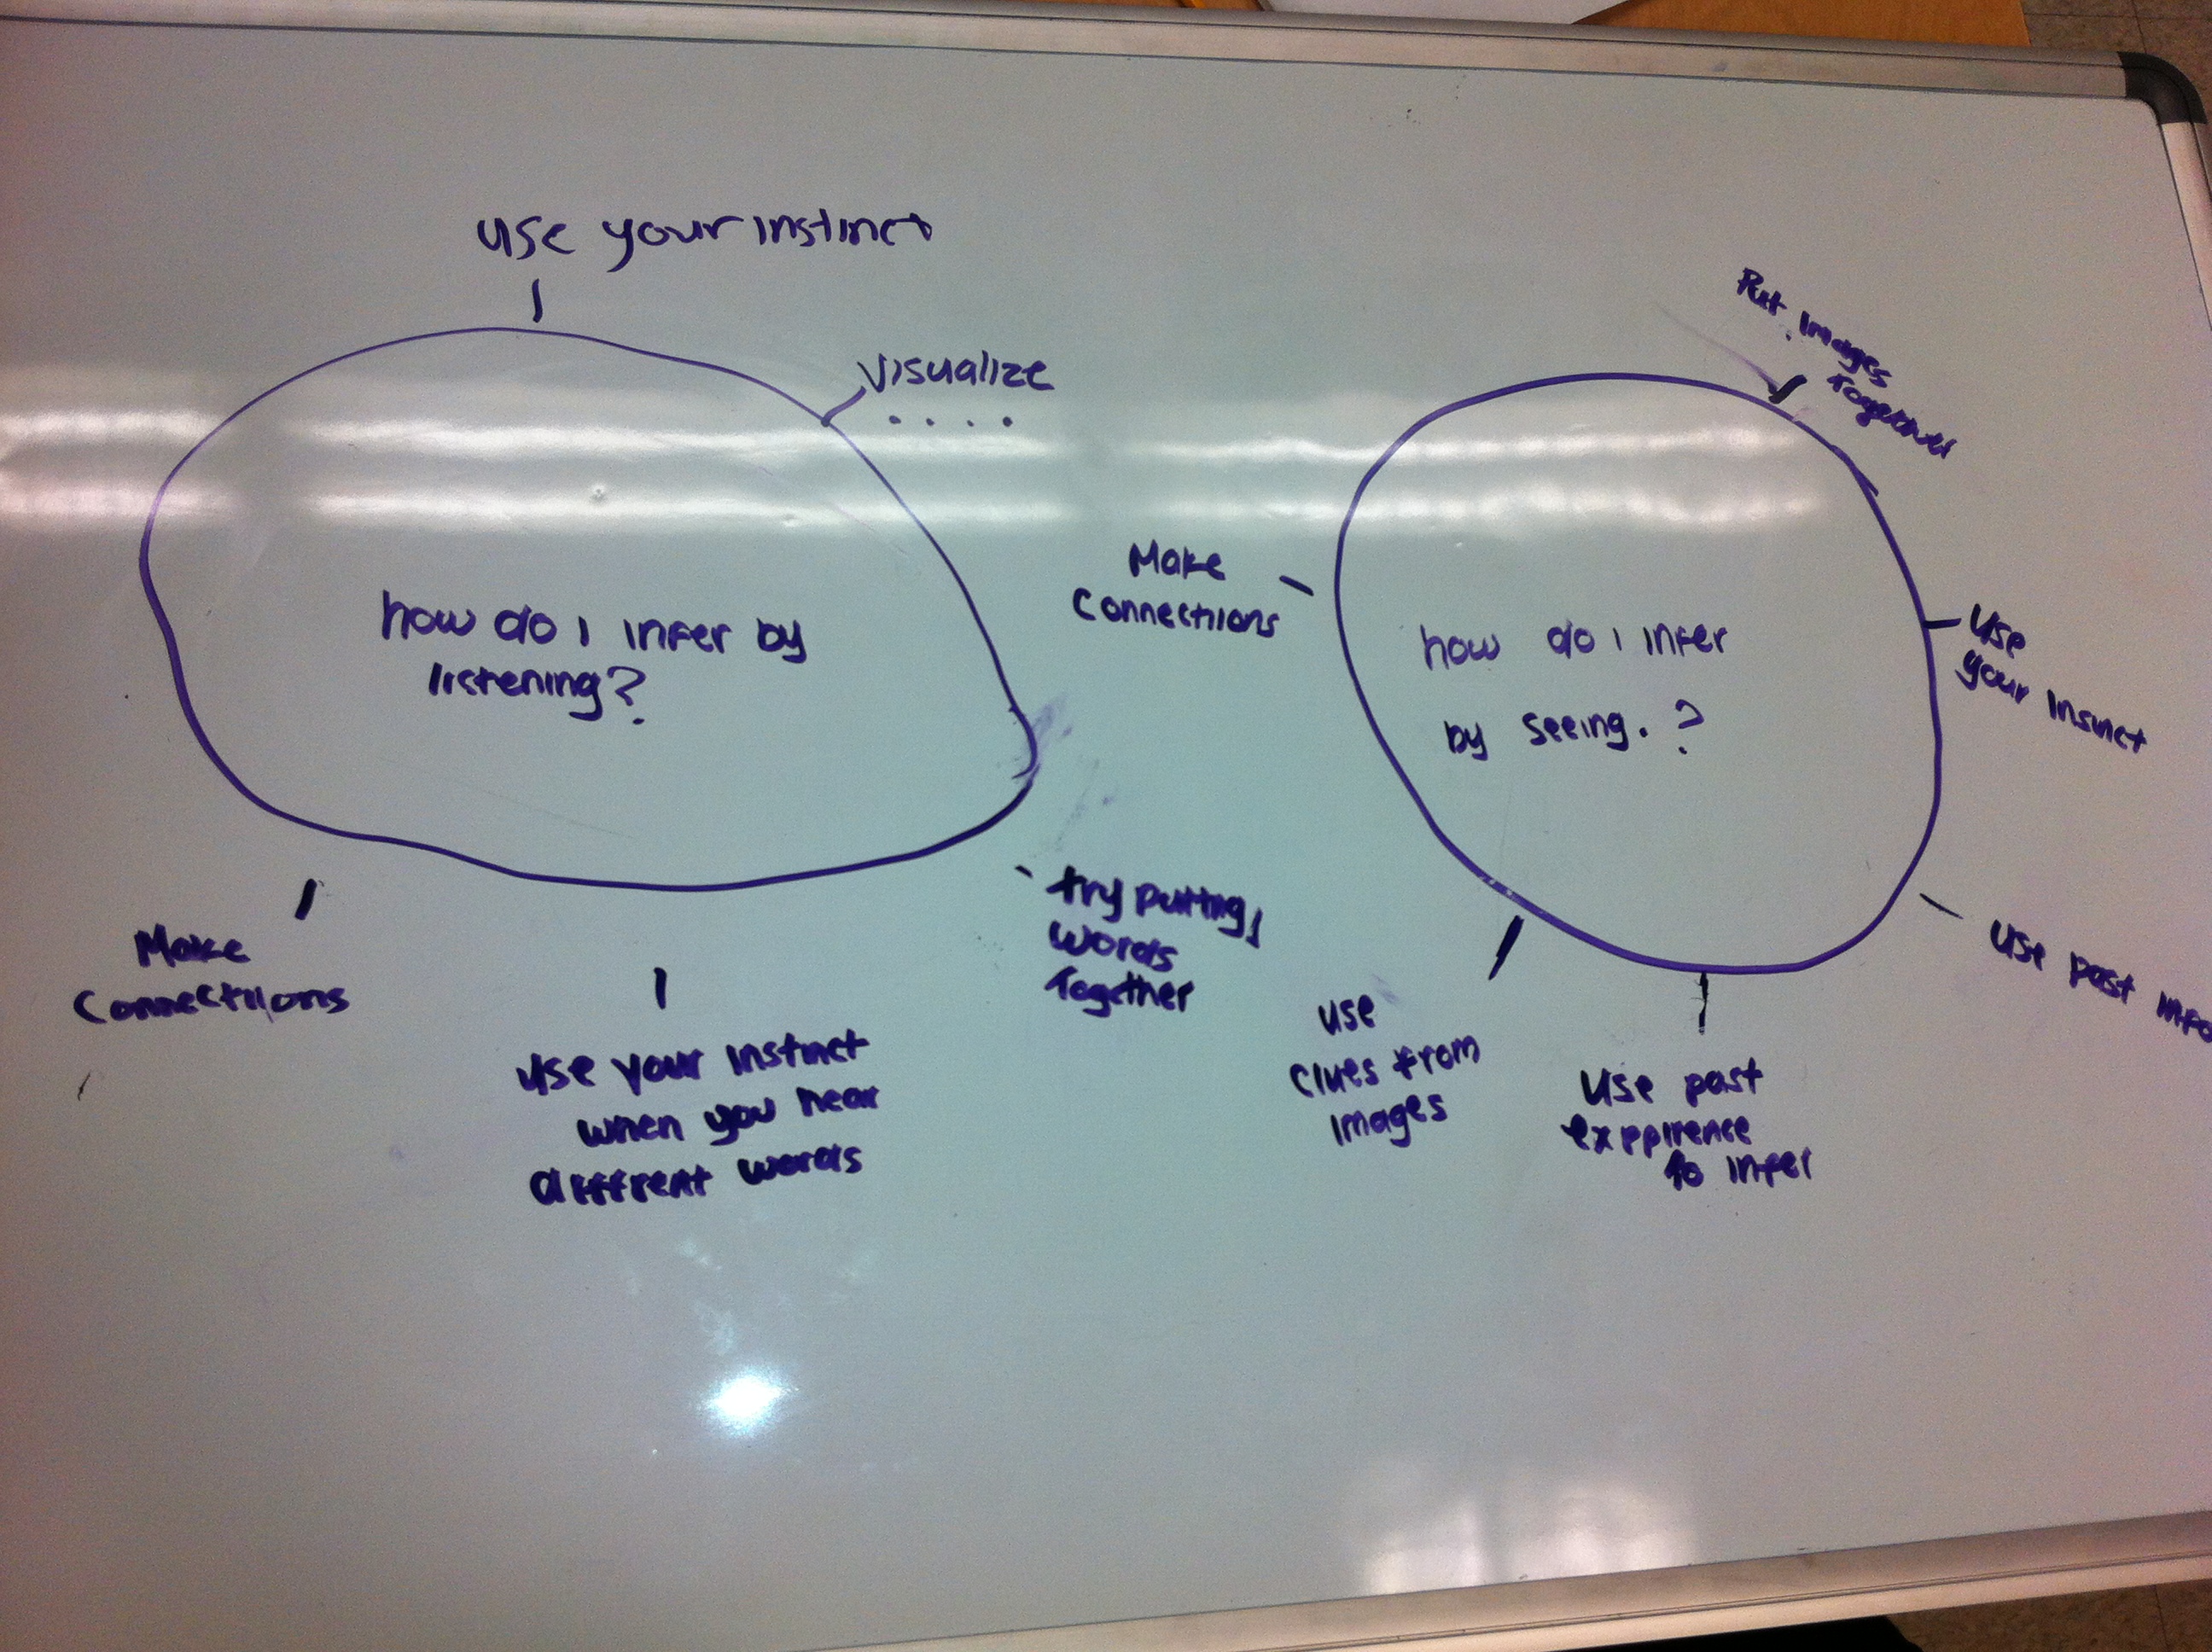 use your instinct
visualize
how do i infer by
listening?
Make
Connectiions
use your instinct
when you hear
diffrent words
try putting
words
together
Put images
together
Make
Connectiions
how do i infer
by seeing. ?
use
your insinct
use past info
use
clues from
images
use past
exppirence
to infer